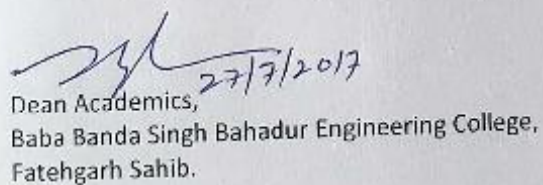 27/7/2017
Dean Academics,
Baba Banda Singh Bahadur Engineering College,
Fatehgarh Sahib.